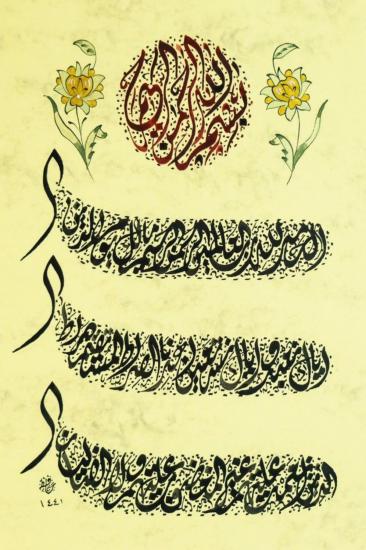 بسم الله الرحمن الرحيم
الحمد لله رب العالمين الرحمن الرحيم مالك يوم الدين
إياك نعبد وإياك نستعين اهدنا الصراط المستقيم صراط
الذين أنعمت عليهم غير المغضوب عليهم ولا الضالين
١٤٤١